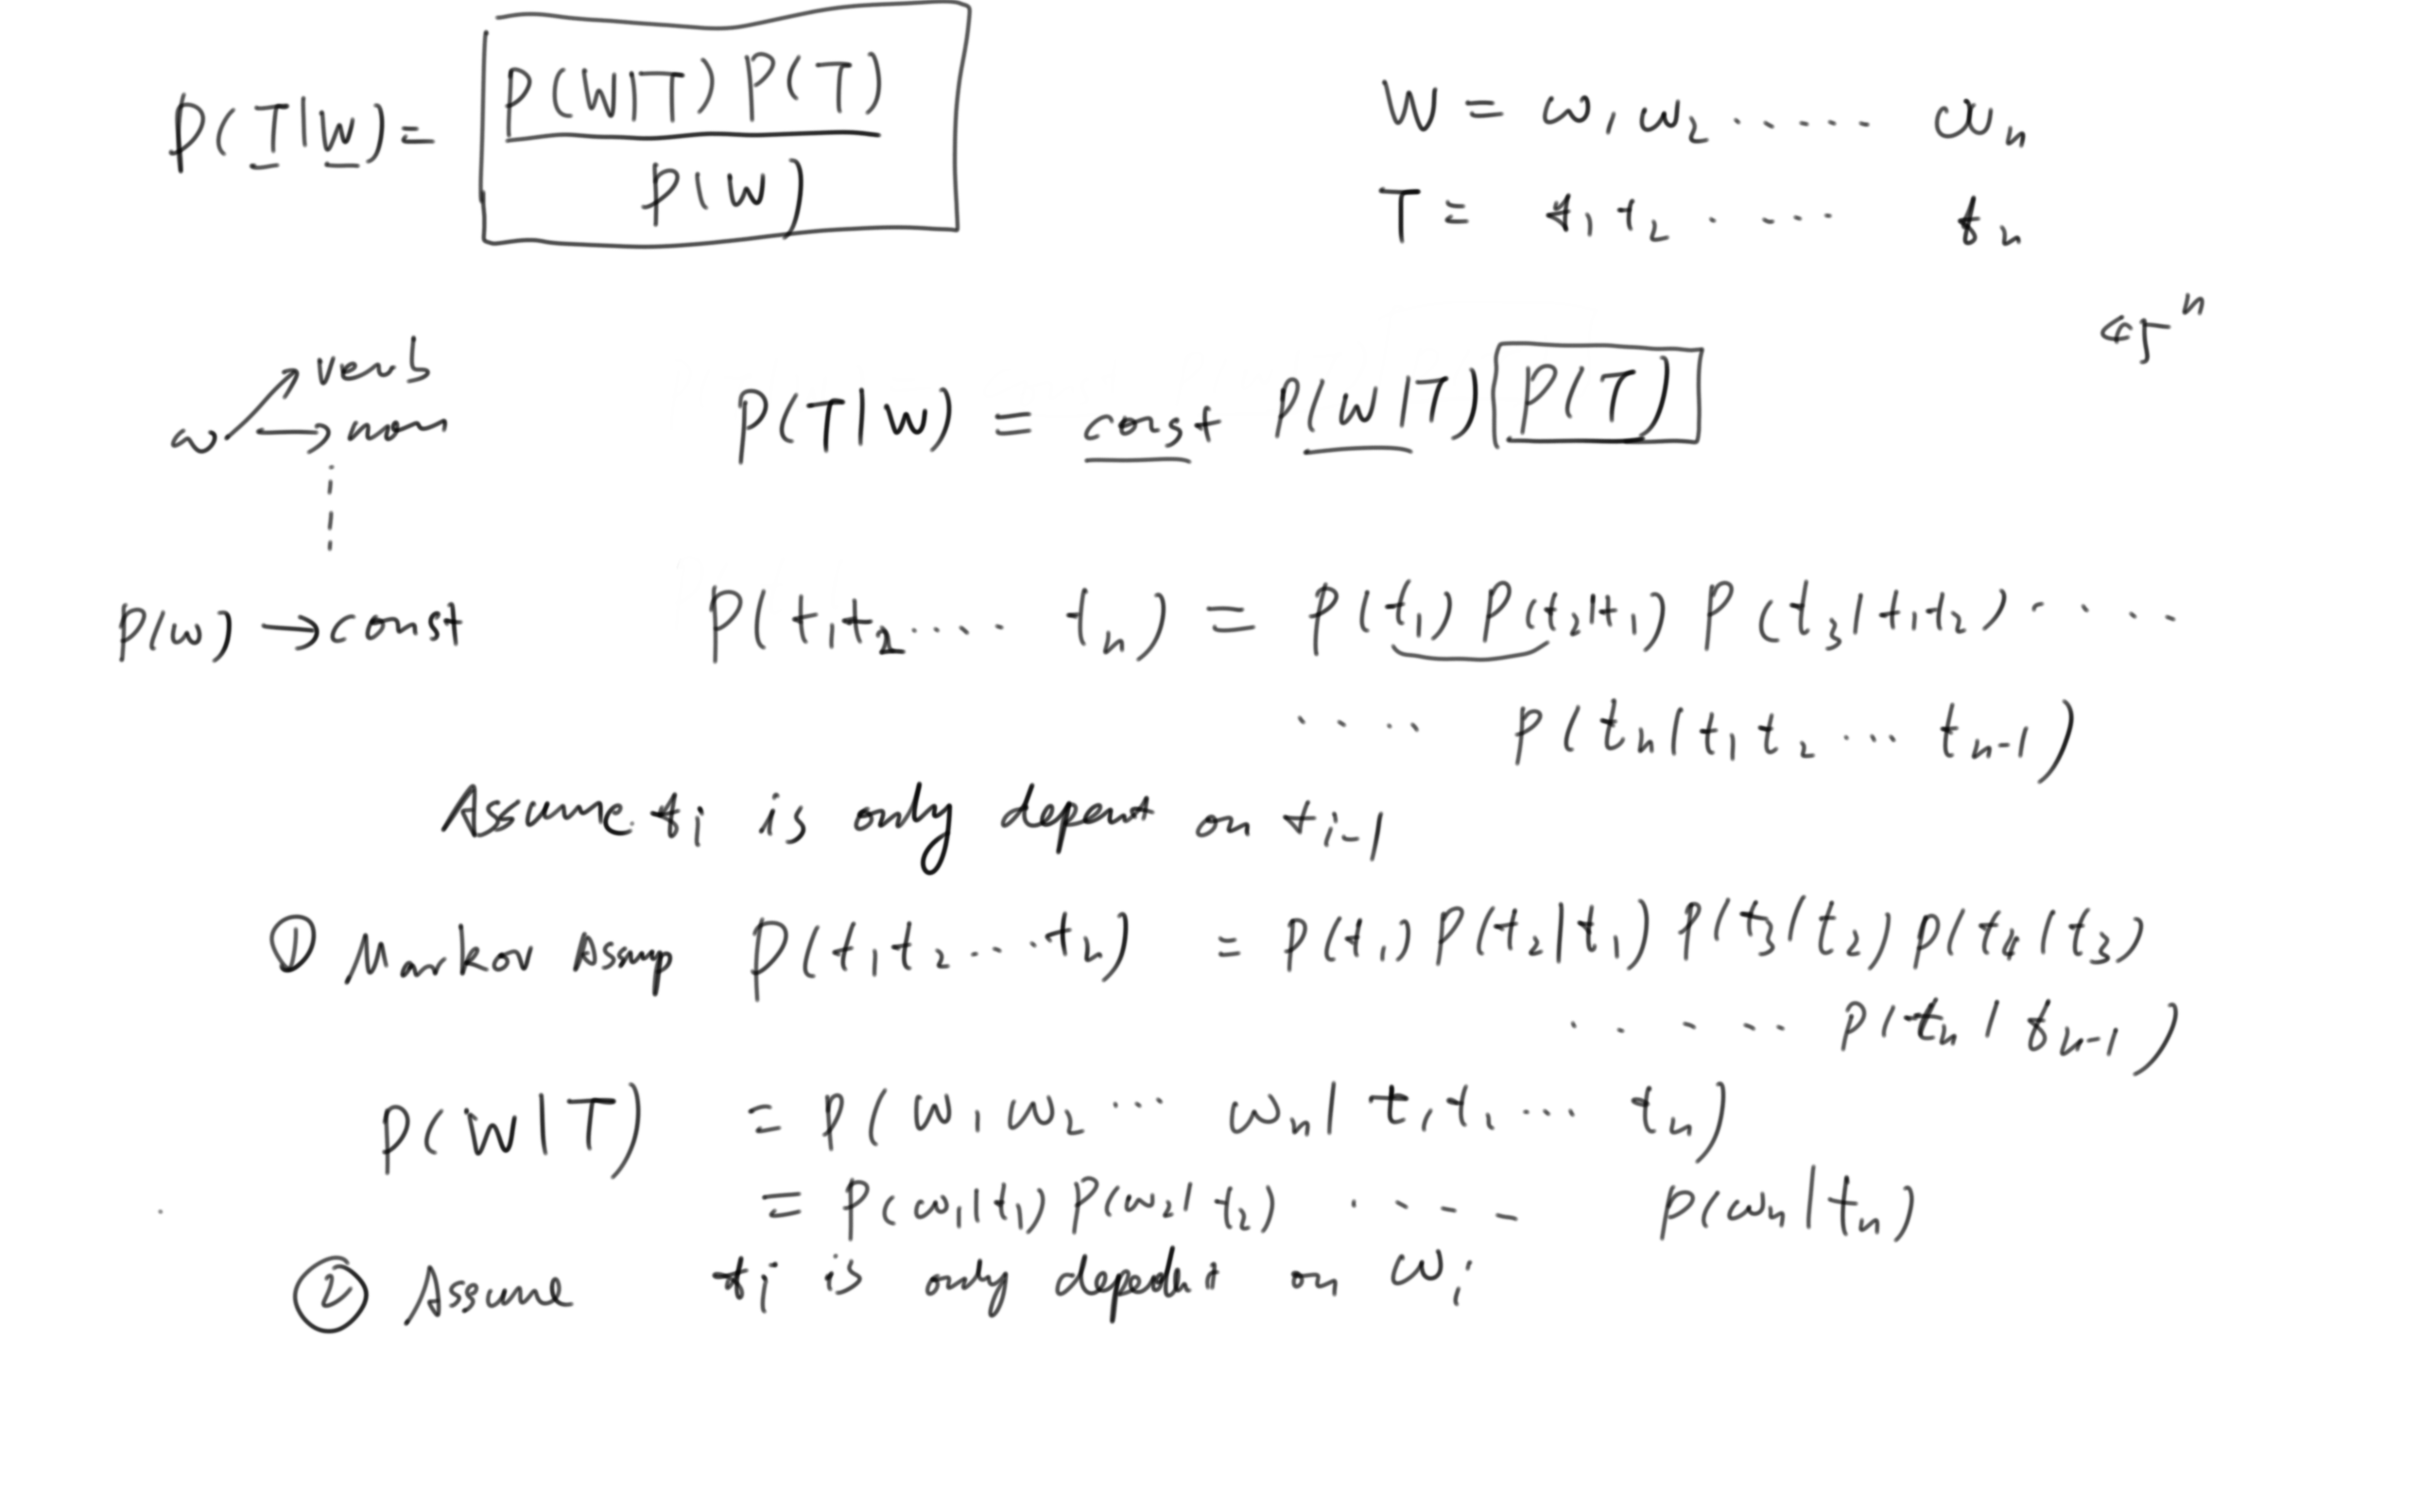 P(T|W) = P(W|T) P(T) / P(W)
W = ω1 ω2 ..... ωn
T = t1 t2 ..... tn
45^n
ω → verb
→ noun
P(T|W) = const P(W|T) P(T)
P(w) → const
P(t1 t2 .... tn) = P(t1) P(t2|t1) P(t3|t1 t2) ....
.... P(tn|t1 t2 ... tn-1)
Assume ti is only depent on ti-1
① Markov Assump P(t1 t2 .... tn) = P(t1) P(t2|t1) P(t3|t2) P(t4|t3)
..... P(tn|tn-1)
P(W|T) = P(w1 w2 ... wn | t1 t1 ... tn)
= P(w1|t1) P(w2|t2) .... P(wn|tn)
② Assume ti is only on wi